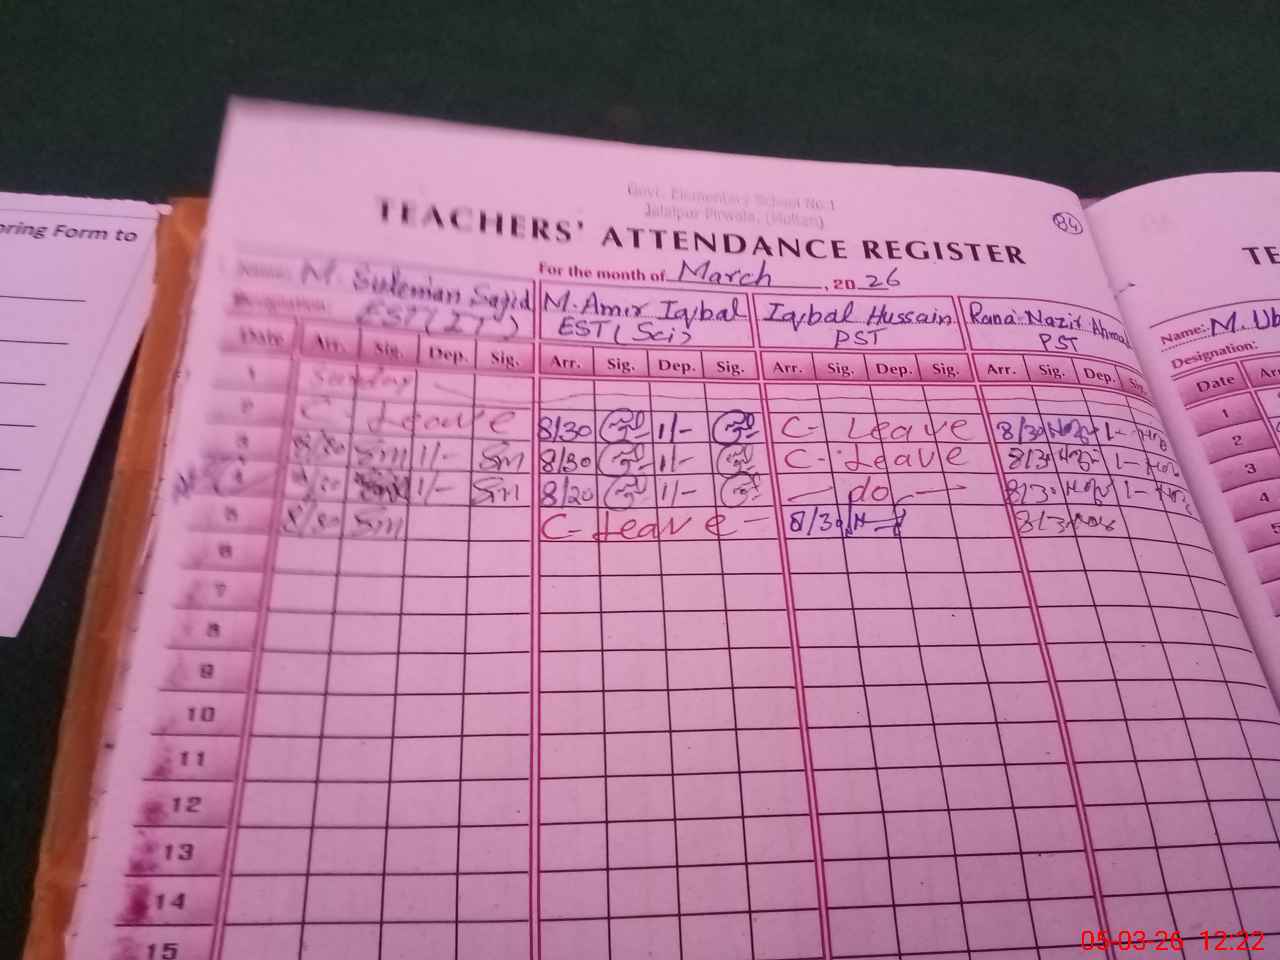 oring Form to
Govt. Elementary School No.1
Jalalpur Pirwala, (Multan)
84
TEACHERS' ATTENDANCE REGISTER
For the month of March, 2026
Name: M. Suleman Sajid M. Amir Iqbal Iqbal Hussain Rana Nazir Ahmad
Designation: EST (IT) EST (Sci) PST PST
Date Arr. Sig. Dep. Sig. Arr. Sig. Dep. Sig. Arr. Sig. Dep. Sig. Arr. Sig. Dep.
1 Sunday
2 C- Leave 8/30 1/- C- Leave 8/30 1-
3 8/30 Sm 1/- Sm 8/30 1/- C- Leave 8/3 1-
4 1/- Sm 8/20 1/- — do — 8/3 1-
5 8/30 Sm C- Leave - 8/30 8/3
6
7
8
9
10
11
12
13
14
15
TE
Name: M. Ub
Designation:
Date Ar
1
2
3
4
5
05-03-26 12:22